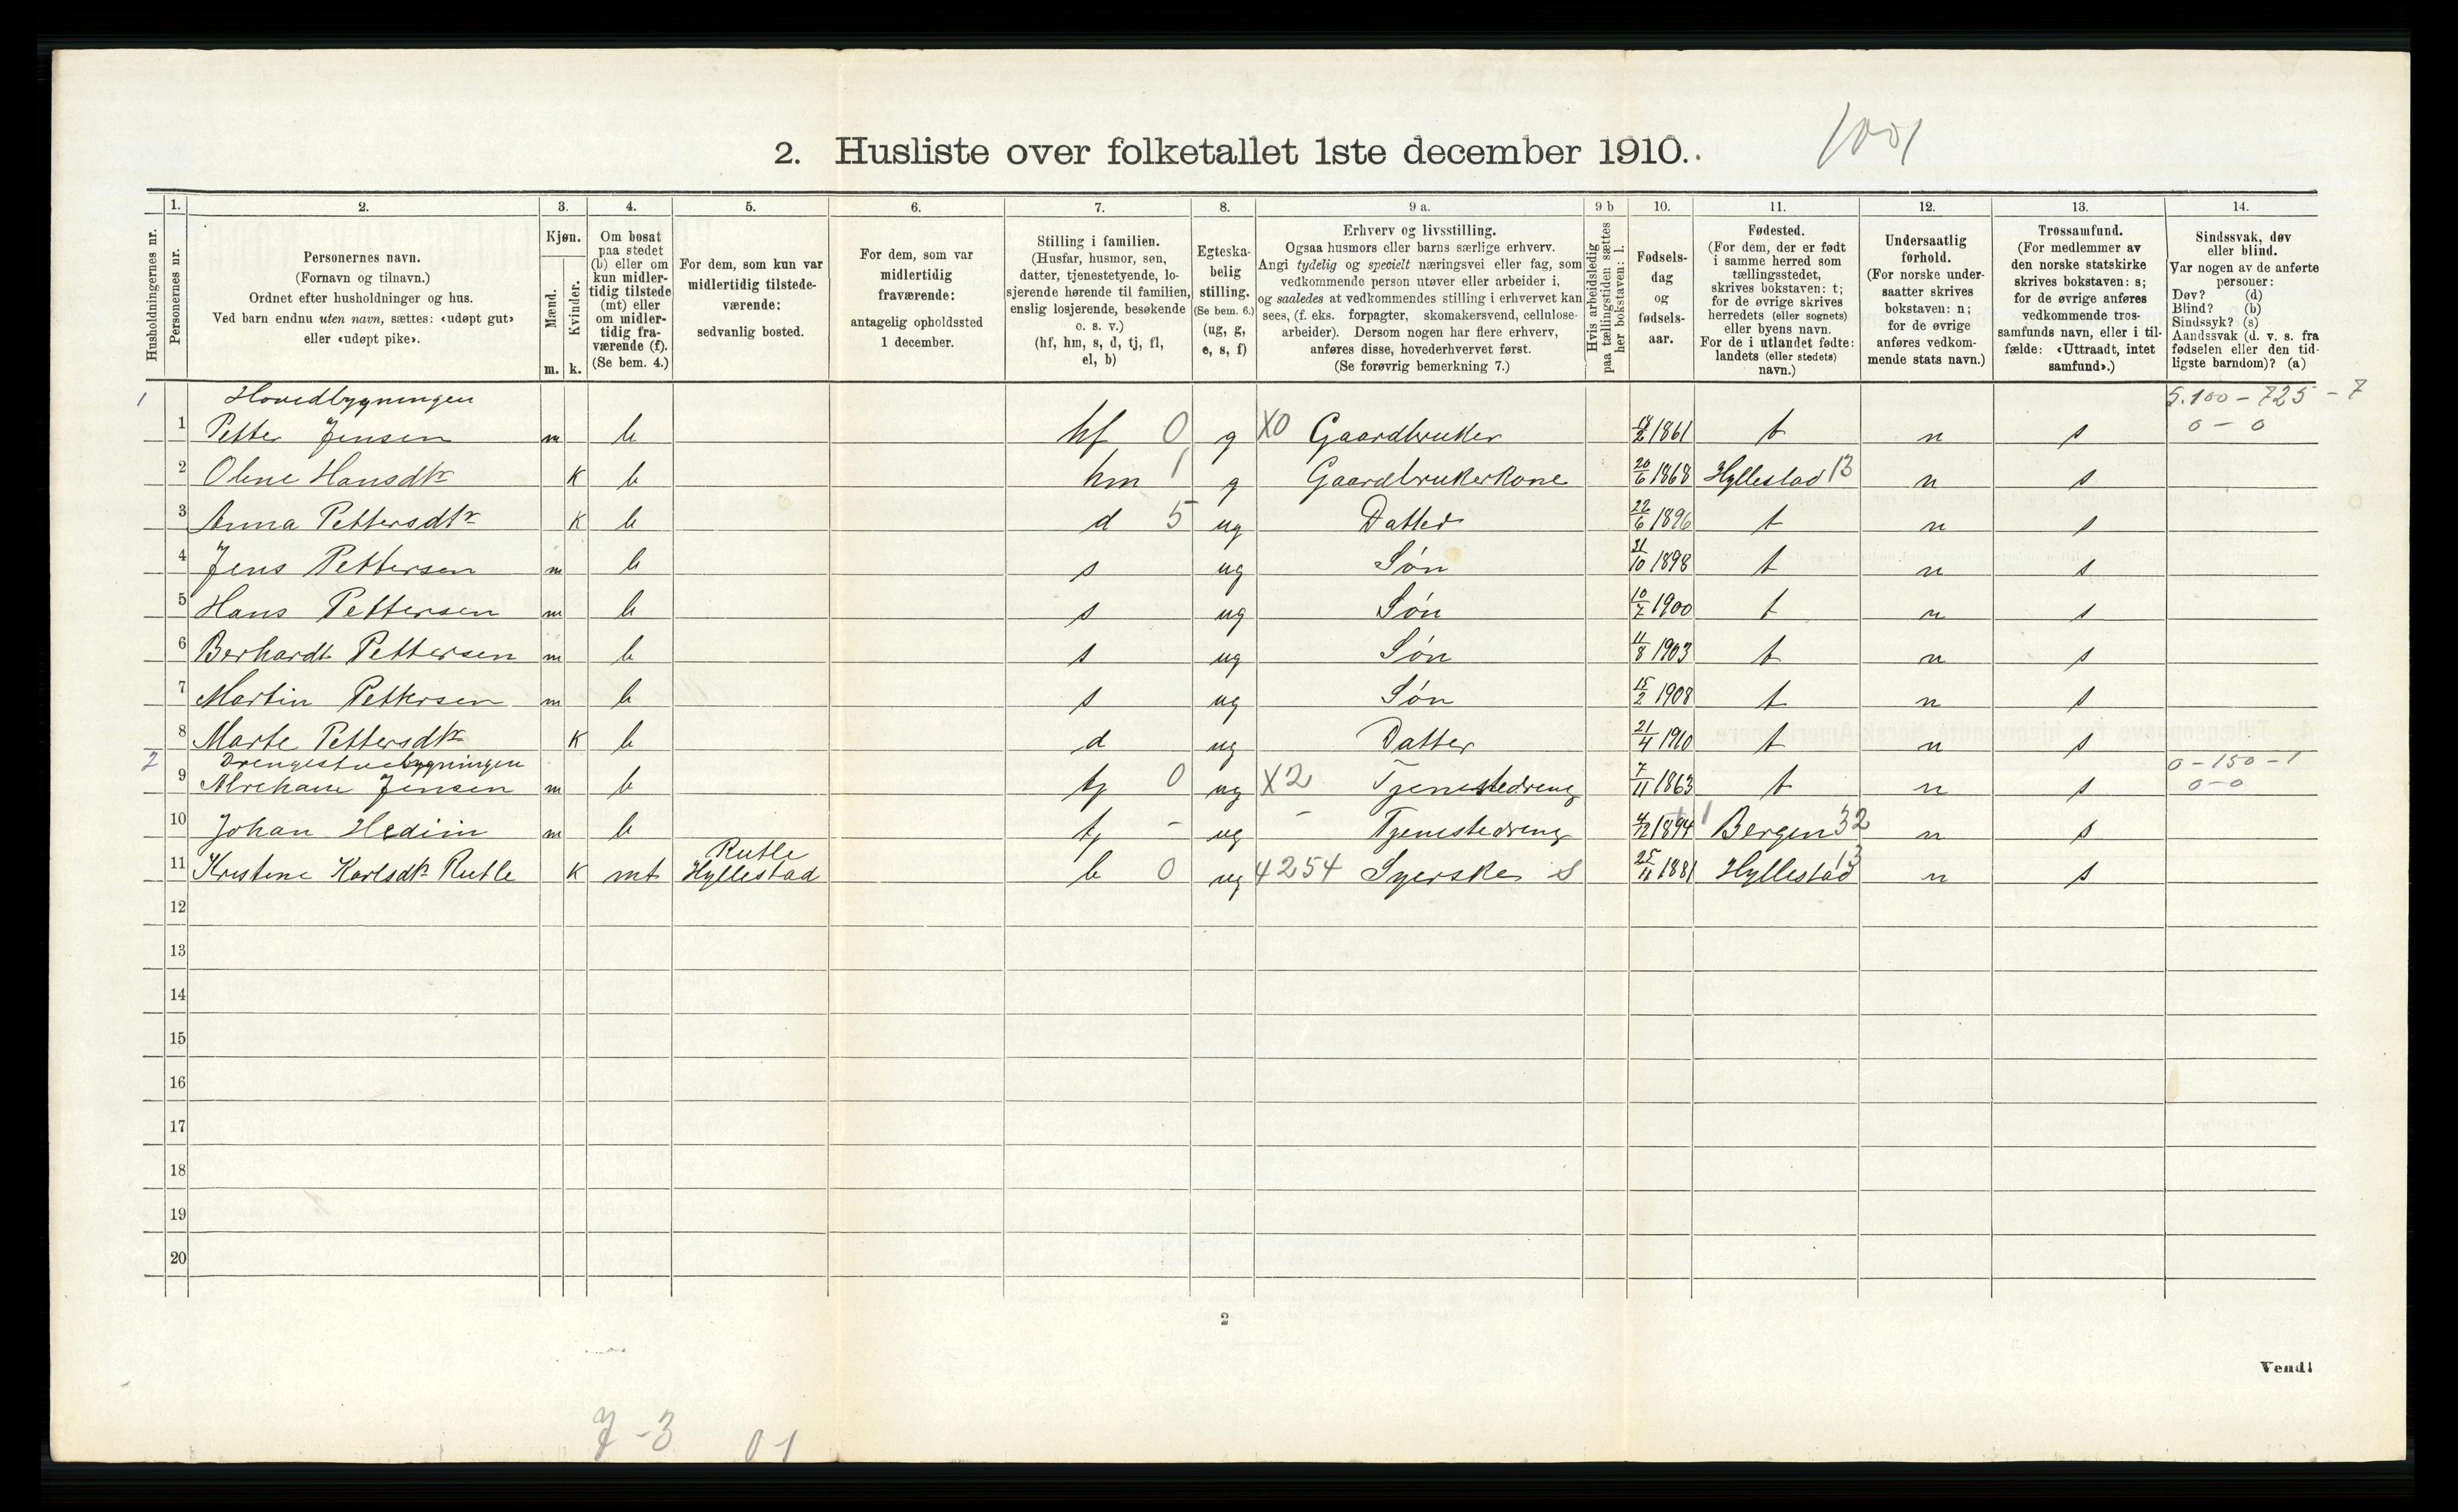 1001
2. Husliste over folketallet 1ste december 1910.
Husholdningernes nr.
1.
Personernes nr.
2.
Personernes navn.
(Fornavn og tilnavn.)
Ordnet efter husholdninger og hus.
Ved barn endnu uten navn, sættes: «udøpt gut»
eller «udøpt pike».
3.
Kjøn.
Mænd.
Kvinder.
m. k.
4.
Om bosat
paa stedet
(b) eller om
kun midler-
tidig tilstede
(mt) eller
om midler-
tidig fra-
værende (f).
(Se bem. 4.)
5.
For dem, som kun var
midlertidig tilstede-
værende:
sedvanlig bosted.
6.
For dem, som var
midlertidig
fraværende:
antagelig opholdssted
1 december.
7.
Stilling i familien.
(Husfar, husmor, søn,
datter, tjenestetyende, lo-
sjerende hørende til familien,
enslig losjerende, besøkende
o. s. v.)
(hf, hm, s, d, tj, fl,
el, b)
8.
Egteska-
belig
stilling.
(Se bem. 6.)
(ug, g,
e, s, f)
9 a.
Erhverv og livsstilling.
Ogsaa husmors eller barns særlige erhverv.
Angi tydelig og specielt næringsvei eller fag, som
vedkommende person utøver eller arbeider i,
og saaledes at vedkommendes stilling i erhvervet kan
sees, (f. eks. forpagter, skomakersvend, cellulose-
arbeider). Dersom nogen har flere erhverv,
anføres disse, hovederhvervet først.
(Se forøvrig bemerkning 7.)
9 b
Hvis arbeidsledig
paa tællingstiden sættes
her bokstaven: l.
10.
Fødsels-
dag
og
fødsels-
aar.
11.
Fødested.
(For dem, der er født
i samme herred som
tællingsstedet,
skrives bokstaven: t;
for de øvrige skrives
herredets (eller sognets)
eller byens navn.
For de i utlandet fødte:
landets (eller stedets)
navn.)
12.
Undersaatlig
forhold.
(For norske under-
saatter skrives
bokstaven: n;
for de øvrige
anføres vedkom-
mende stats navn.)
13.
Trossamfund.
(For medlemmer av
den norske statskirke
skrives bokstaven: s;
for de øvrige anføres
vedkommende tros-
samfunds navn, eller i til-
fælde: «Uttraadt, intet
samfund».)
14.
Sindssvak, døv
eller blind.
Var nogen av de anførte
personer:
Døv? (d)
Blind? (b)
Sindssyk? (s)
Aandssvak (d. v. s. fra
fødselen eller den tid-
ligste barndom)? (a)
1 Hovedbygningen 5.100 - 725 - 7
1 Petter Jensen m b hf 0 g X0 Gaardbruker 18/2 1861 t n s 0 - 0
2 Olene Hansdtr K b hm 1 g Gaardbrukerkone 20/6 1868 Hyllestad 13 n s
3 Anna Pettersdtr K b d 5 ug Datter 26/6 1896 t n s
4 Jens Pettersen m b s ug Søn 31/10 1898 t n s
5 Hans Pettersen m b s ug Søn 10/7 1900 t n s
6 Berhardt Pettersen m b s ug Søn 11/8 1903 t n s
7 Martin Pettersen m b s ug Søn 15/2 1908 t n s
8 Marte Pettersdtr K b d ug Datter 21/4 1910 t n s
2 Drengestuebygningen 0 - 150 - 1
9 Jensen m b tj 0 ug X2 Tjenestedreng 7/11 1863 t n s 0 - 0
10 Johan Hedim m b tj - ug - Tjenestedreng 4/12 1894 1 Bergen 32 n s
Rutle
11 Kristene Karlsdtr Rutle K mt Hyllestad b 0 ug 4254 Syerske s 25/11 1881 Hyllestad 13 n s
12
13
14
15
16
17
18
19
20
2
Vend!
7 - 3 0 1